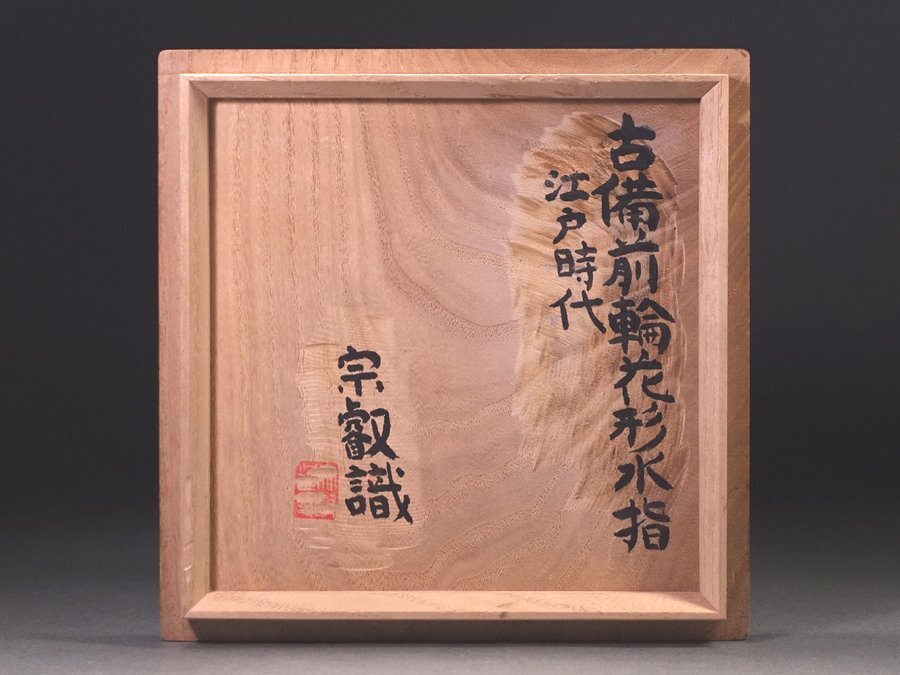 古備前輪花形水指
江戸時代
宗叡識